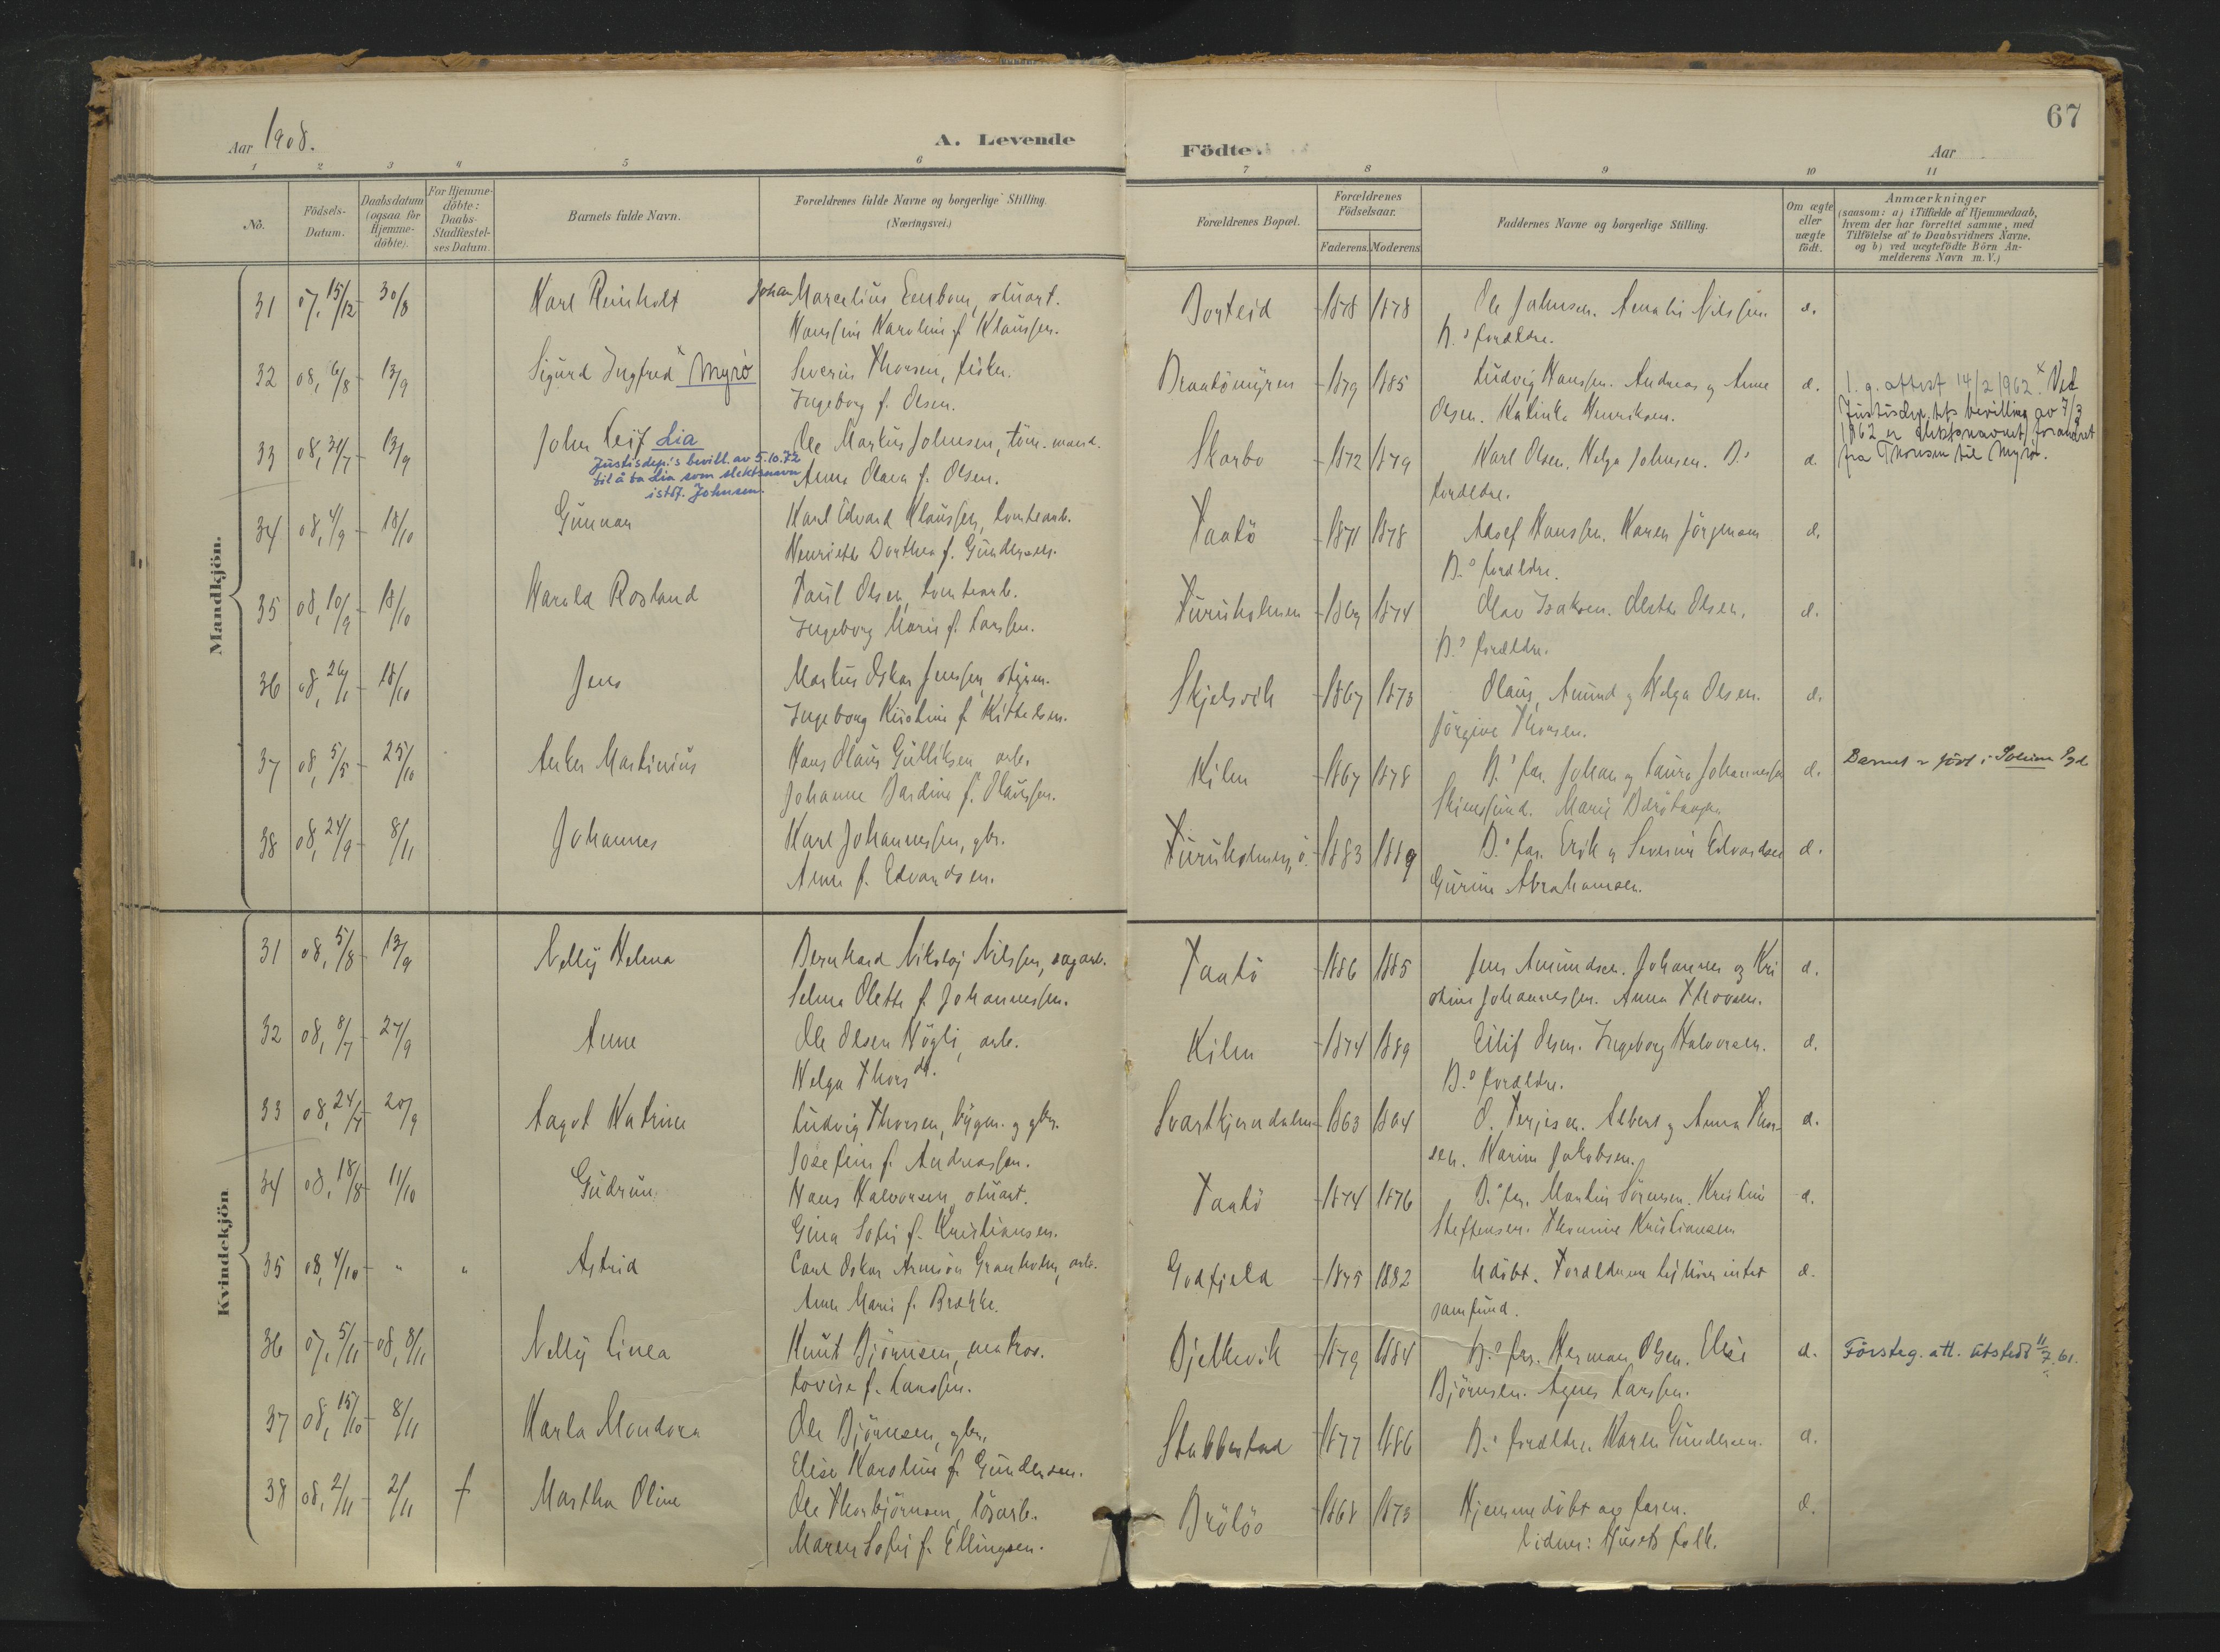 67
Aar 1908.
A. Levende
Födte
Aar
1 2 3 4 5 6 7 8 9 10 11
No.
Födsels-Datum.
Daabsdatum (ogsaa for Hjemme-döbte).
For Hjemme-döbte: Daabs-Stadfæstel-ses Datum.
Barnets fulde Navn.
Forældrenes fulde Navne og borgerlige Stilling. (Næringsvei.)
Forældrenes Bopæl.
Forældrenes Födselsaar.
Faderens. Moderens.
Faddernes Navne og borgerlige Stilling.
Om ægte eller uægte födt.
Anmærkninger
(saasom: a) i Tilfælde af Hjemmedaab,
hvem der har forrettet samme, med
Tilföielse af to Daabsvidners Navne.
og b) ved uægtefödte Börn An-
melderens Navn m. V.)
Mandkjön.
31 07, 15/12 30/8 Karl Reinholt Johan Marcelius stuart. 1878 1878 Ole Johnsen. Amalie Nilssen. d.
Hanssine Karoline f. Klaussen. B.s forældre.
32 08, 6/8 13/9 Sigurd Ingfred Myrö Severin Thorsen, fisker. Braatömyren 1879 1885 Ludvig Hanssen. Andreas og Anne d. 1. g. attest 14/2 1962. Ved
Ingeborg f. Olsen. Olsen. Kalinka Henriksen. Justisdep.tets bevilling av 7/3
1962 er slektsnavnet forandret
fra Thorsen til Myrö.
33 08, 31/7 13/9 John Leif Lia Ole Markus Johnsen, töm.mand. Skarbo 1872 1879 Karl Olsen. Helga Johnsen. B.s d.
Justisdep.'s bevill. av 5.10.72
til å ta Lia som slektsnavn
istdf. Johnsen.
Anna Olava f. Olsen. forældre.
34 08, 4/9 18/10 Gunnar Karl Edvard Klaussen, tomtearb. Taatö 1871 1878 Adolf Hanssen. Karen Jörgensen d.
Henriette Dorthea f. Gundersen. B.s forældre.
35 08, 10/9 18/10 Harald Rosland Paul Olsen, tomtearb. Furuholmen 1874 Olav Isaksen. Olsen. d.
Ingeborg Marie f. Larssen. B.s forældre.
36 08, 18/10 Jens Markus Oskar Jenssen, styrm. Skjelsvik 1867 1873 Olaus, Amund og Helga Olsen. d.
Ingeborg Kristine f. Kittelsen. Jörgine Thorsen.
37 08, 5/5 25/10 Anker Martinius Hans Olaus Gulliksen arb. Kilen 1867 1878 B.s far. Johan og Laura Johannessen d. Barnet er född i Solum
Johanne Bardine f. Olaussen. Skienssund. Marie
38 08, 24/9 8/11 Johannes Karl Johannessen, gbr. Furuholmen, ö. 1883 1889 B.s far. Erik og Severine Edvardsen d.
Anne f. Edvardsen. Gurine Abrahamsen.
Kvindekjön
31 08, 5/8 13/9 Nelly Helena Bernhard Nikolaj Nilssen, sagarb. Taatö 1886 1885 Jens Amundsen. Johannes og Kri d.
Selma Olette f. Johannessen. stine Johannessen. Anna Thorsen.
32 08, 8/7 27/9 Anne Ole Olsen Högli, arb. Kilen 1874 1889 Eilif Olsen. Ingeborg Halvorsen. d.
Helga Thorsdt. B.s forældre.
33 08, 24/7 20/9 Aagot Katrine Ludvig Thorsen, bygm. og gbr. Svartkjerndalen 1863 1864 O. Terjesen. Albert og Anna Thor- d.
Josefine f. Andreassen. sen. Karine Jakobsen.
34 08, 18/8 11/10 Gudrun Hans Halvorsen, stuart. Taatö 1874 1876 B.s far. Martin Sörensen. Kristine d.
Gina Sofie f. Kristiansen. Steffensen. Thomine Kristiansen
35 08, 4/10 " " Astrid Carl Oskar Granholm, arb. Godfjeld 1875 1882 Udöbt. Forældrene tilhörer intet d.
Anna Marie f. Brække. samfund.
36 07, 5/11 08, 8/11 Nelly Linea Knut Björnsen, matros. Bjelkevik 1879 1884 B.s far. Herman Olsen. Elise d. Försteg. att. utstedt 11/7. 61.
Lovise f. Larssen. Björnsen. Agnes Larssen.
37 08, 15/10 8/11 Karla Mondora Ole Björnsen, gbr. Stabbestad 1877 1886 B.s forældre. Karen Gundersen. d.
Elise Karoline f. Gundersen.
38 08, 2/11 2/11 † Martha Oline Ole Thorbjörnsen, lösarb. Bröløs 1868 1873 Hjemmedöbt av faren. d.
Maren Sofie f. Ellingsen. Vidner: Husets folk.